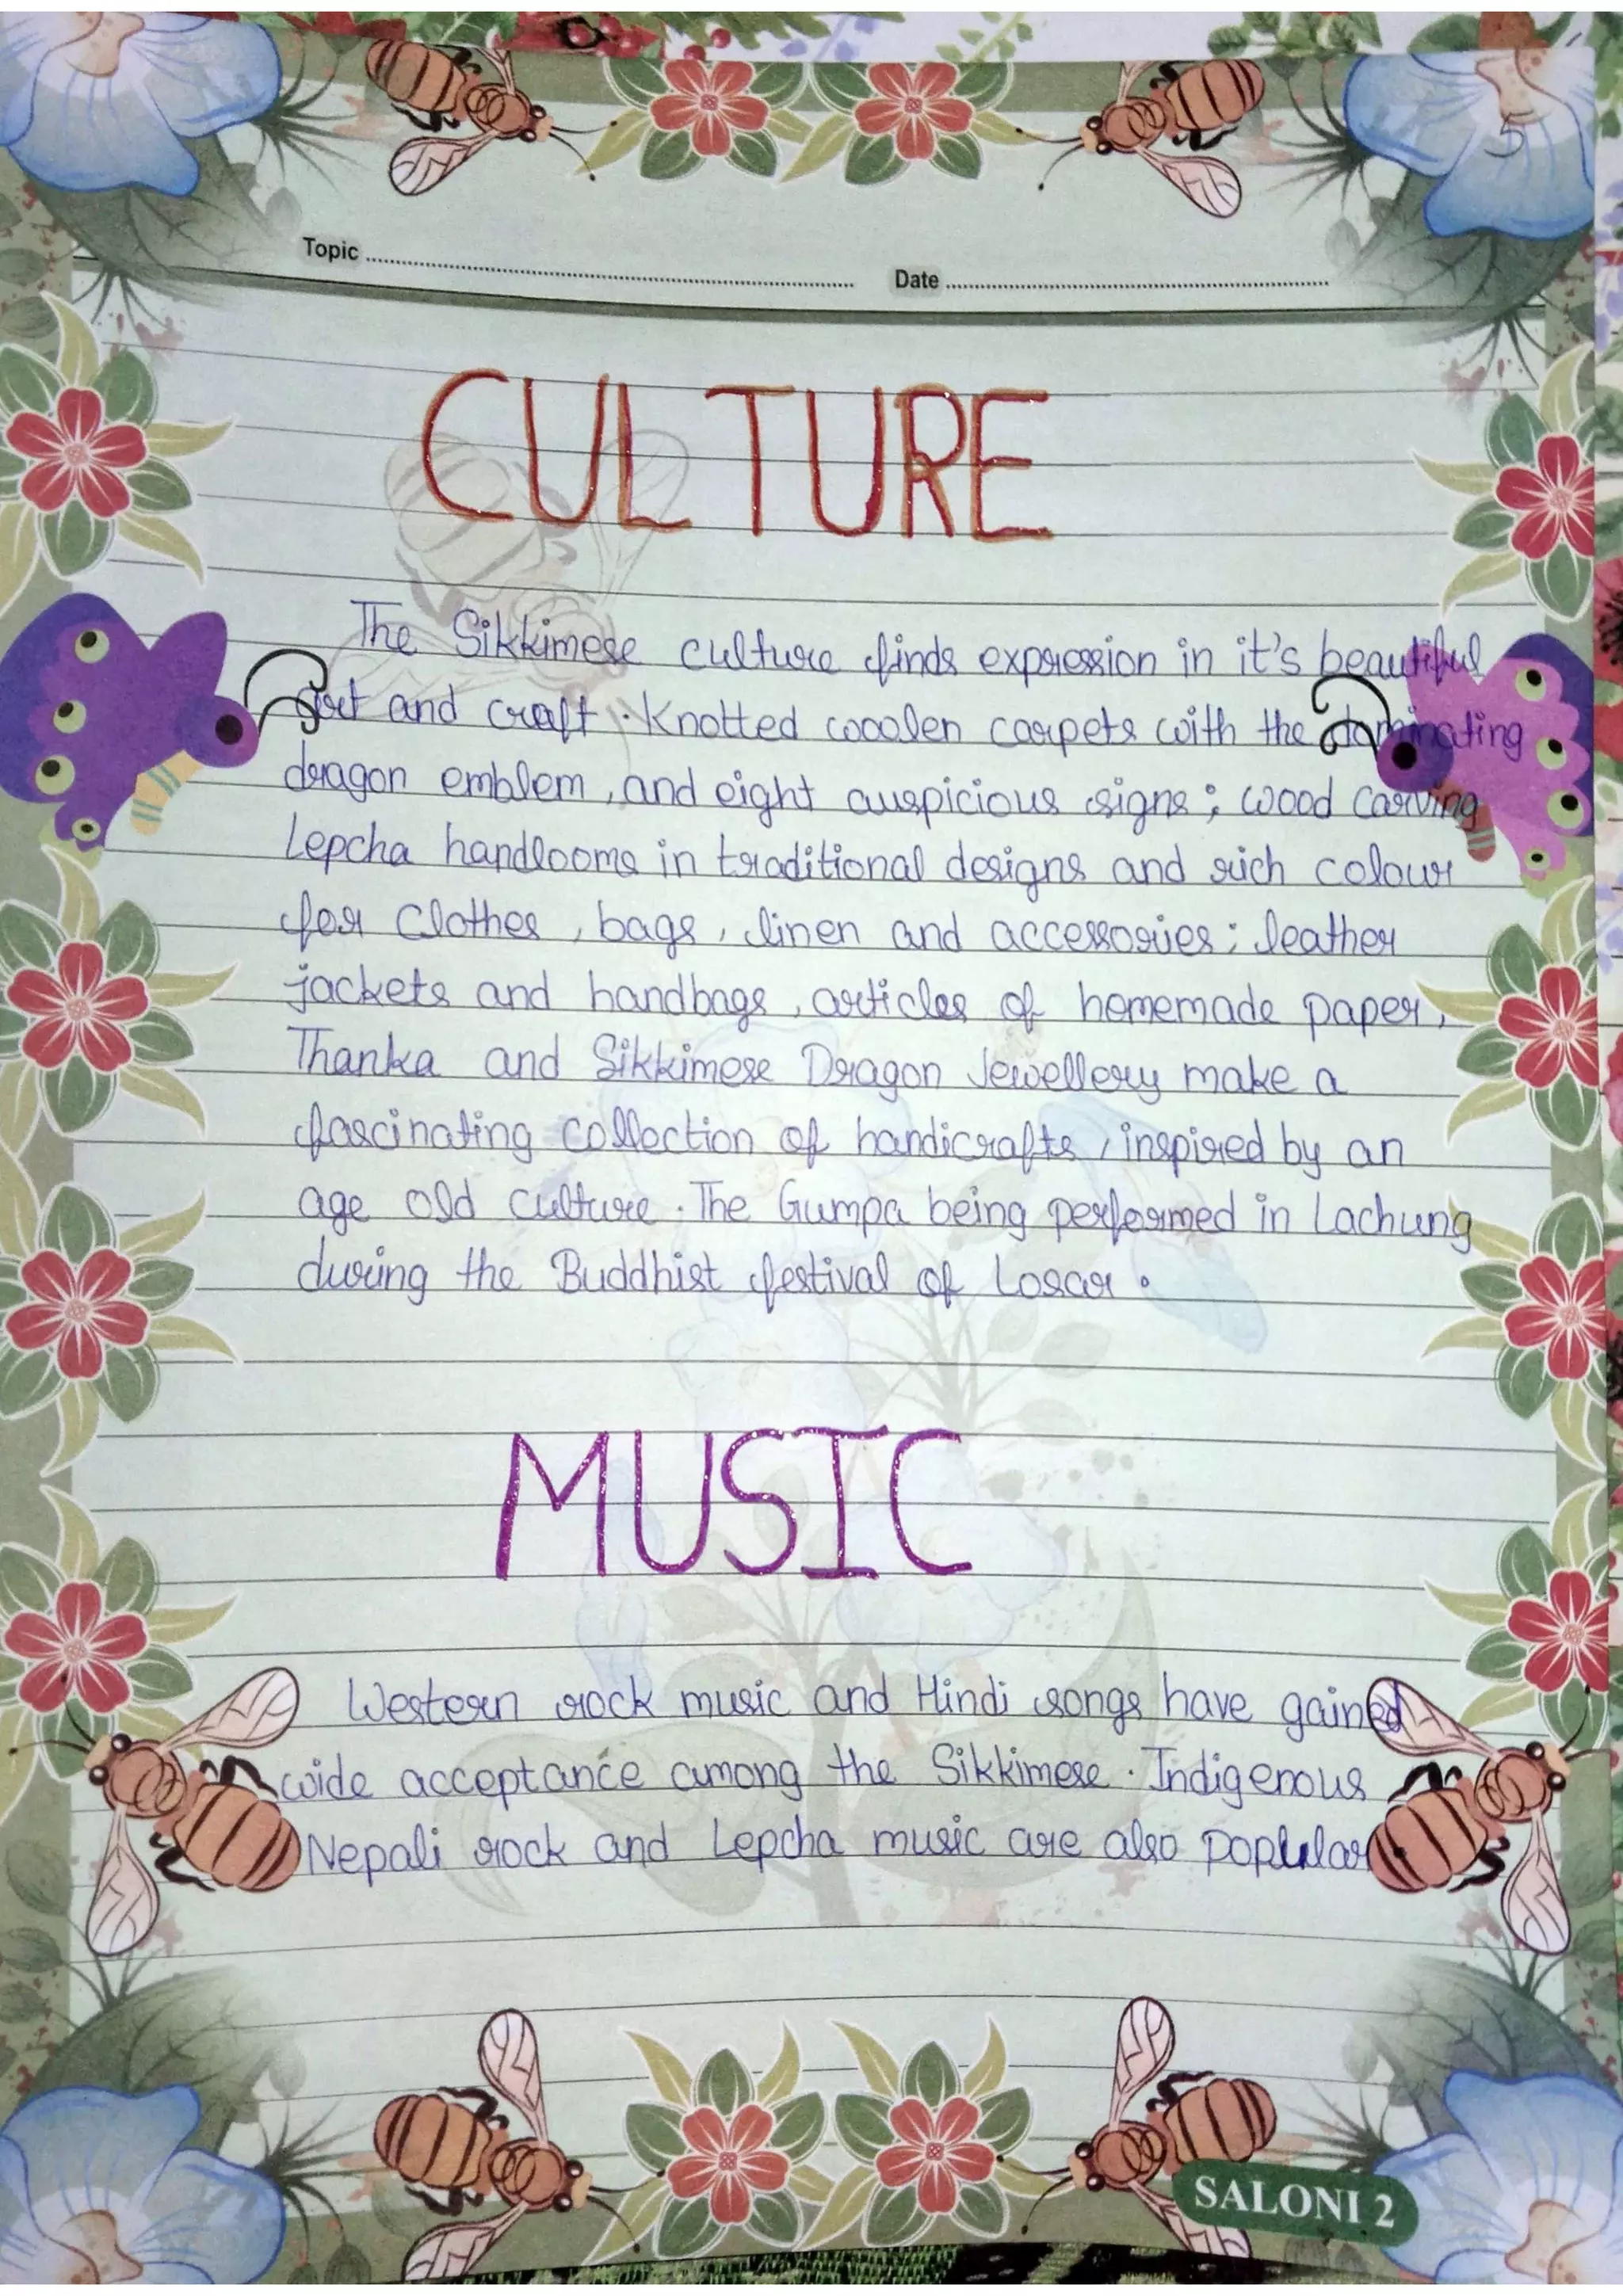 Topic
Date
CULTURE
The Sikkimese culture finds expression in it's beautiful
art and craft. Knotted woolen carpets with the dominating
dragon emblem, and eight auspicious signs; wood carving
Lepcha handlooms in traditional designs and rich colour
for Clothes, bags, linen and accessories; leather
jackets and handbags, articles of homemade paper,
Thanka and Sikkimese Dragon Jewellery make a
fascinating collection of handicrafts, inspired by an
age old culture. The Gumpa being performed in Lachung
during the Buddhist festival of Loscar.
MUSIC
Western rock music and Hindi songs have gained
wide acceptance among the Sikkimese. Indigenous
Nepali rock and Lepcha music are also popular
SALONI 2